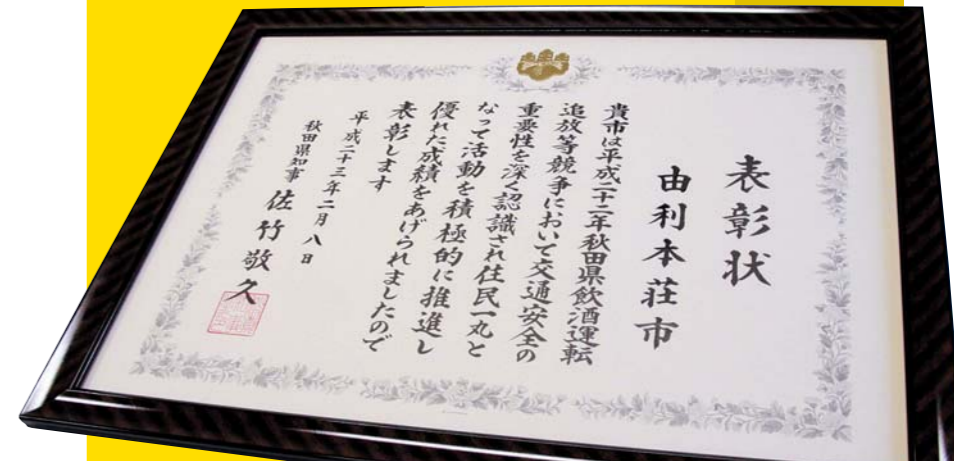 表彰状
由利本荘市
貴市は平成二十二年秋田県飲酒運転
追放等競争において交通安全の
重要性を深く認識され住民一丸と
なって活動を積極的に推進し
優れた成績をあげられましたので
表彰します
平成二十三年二月八日
秋田県知事 佐竹敬久